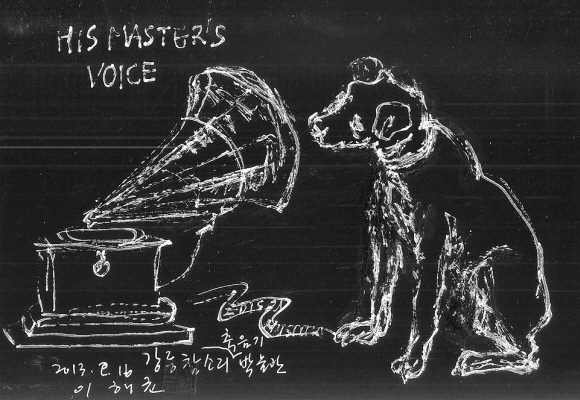 HIS MASTER'S
VOICE
EDISON
축음기
2013. 2. 16 강릉참소리 박물관